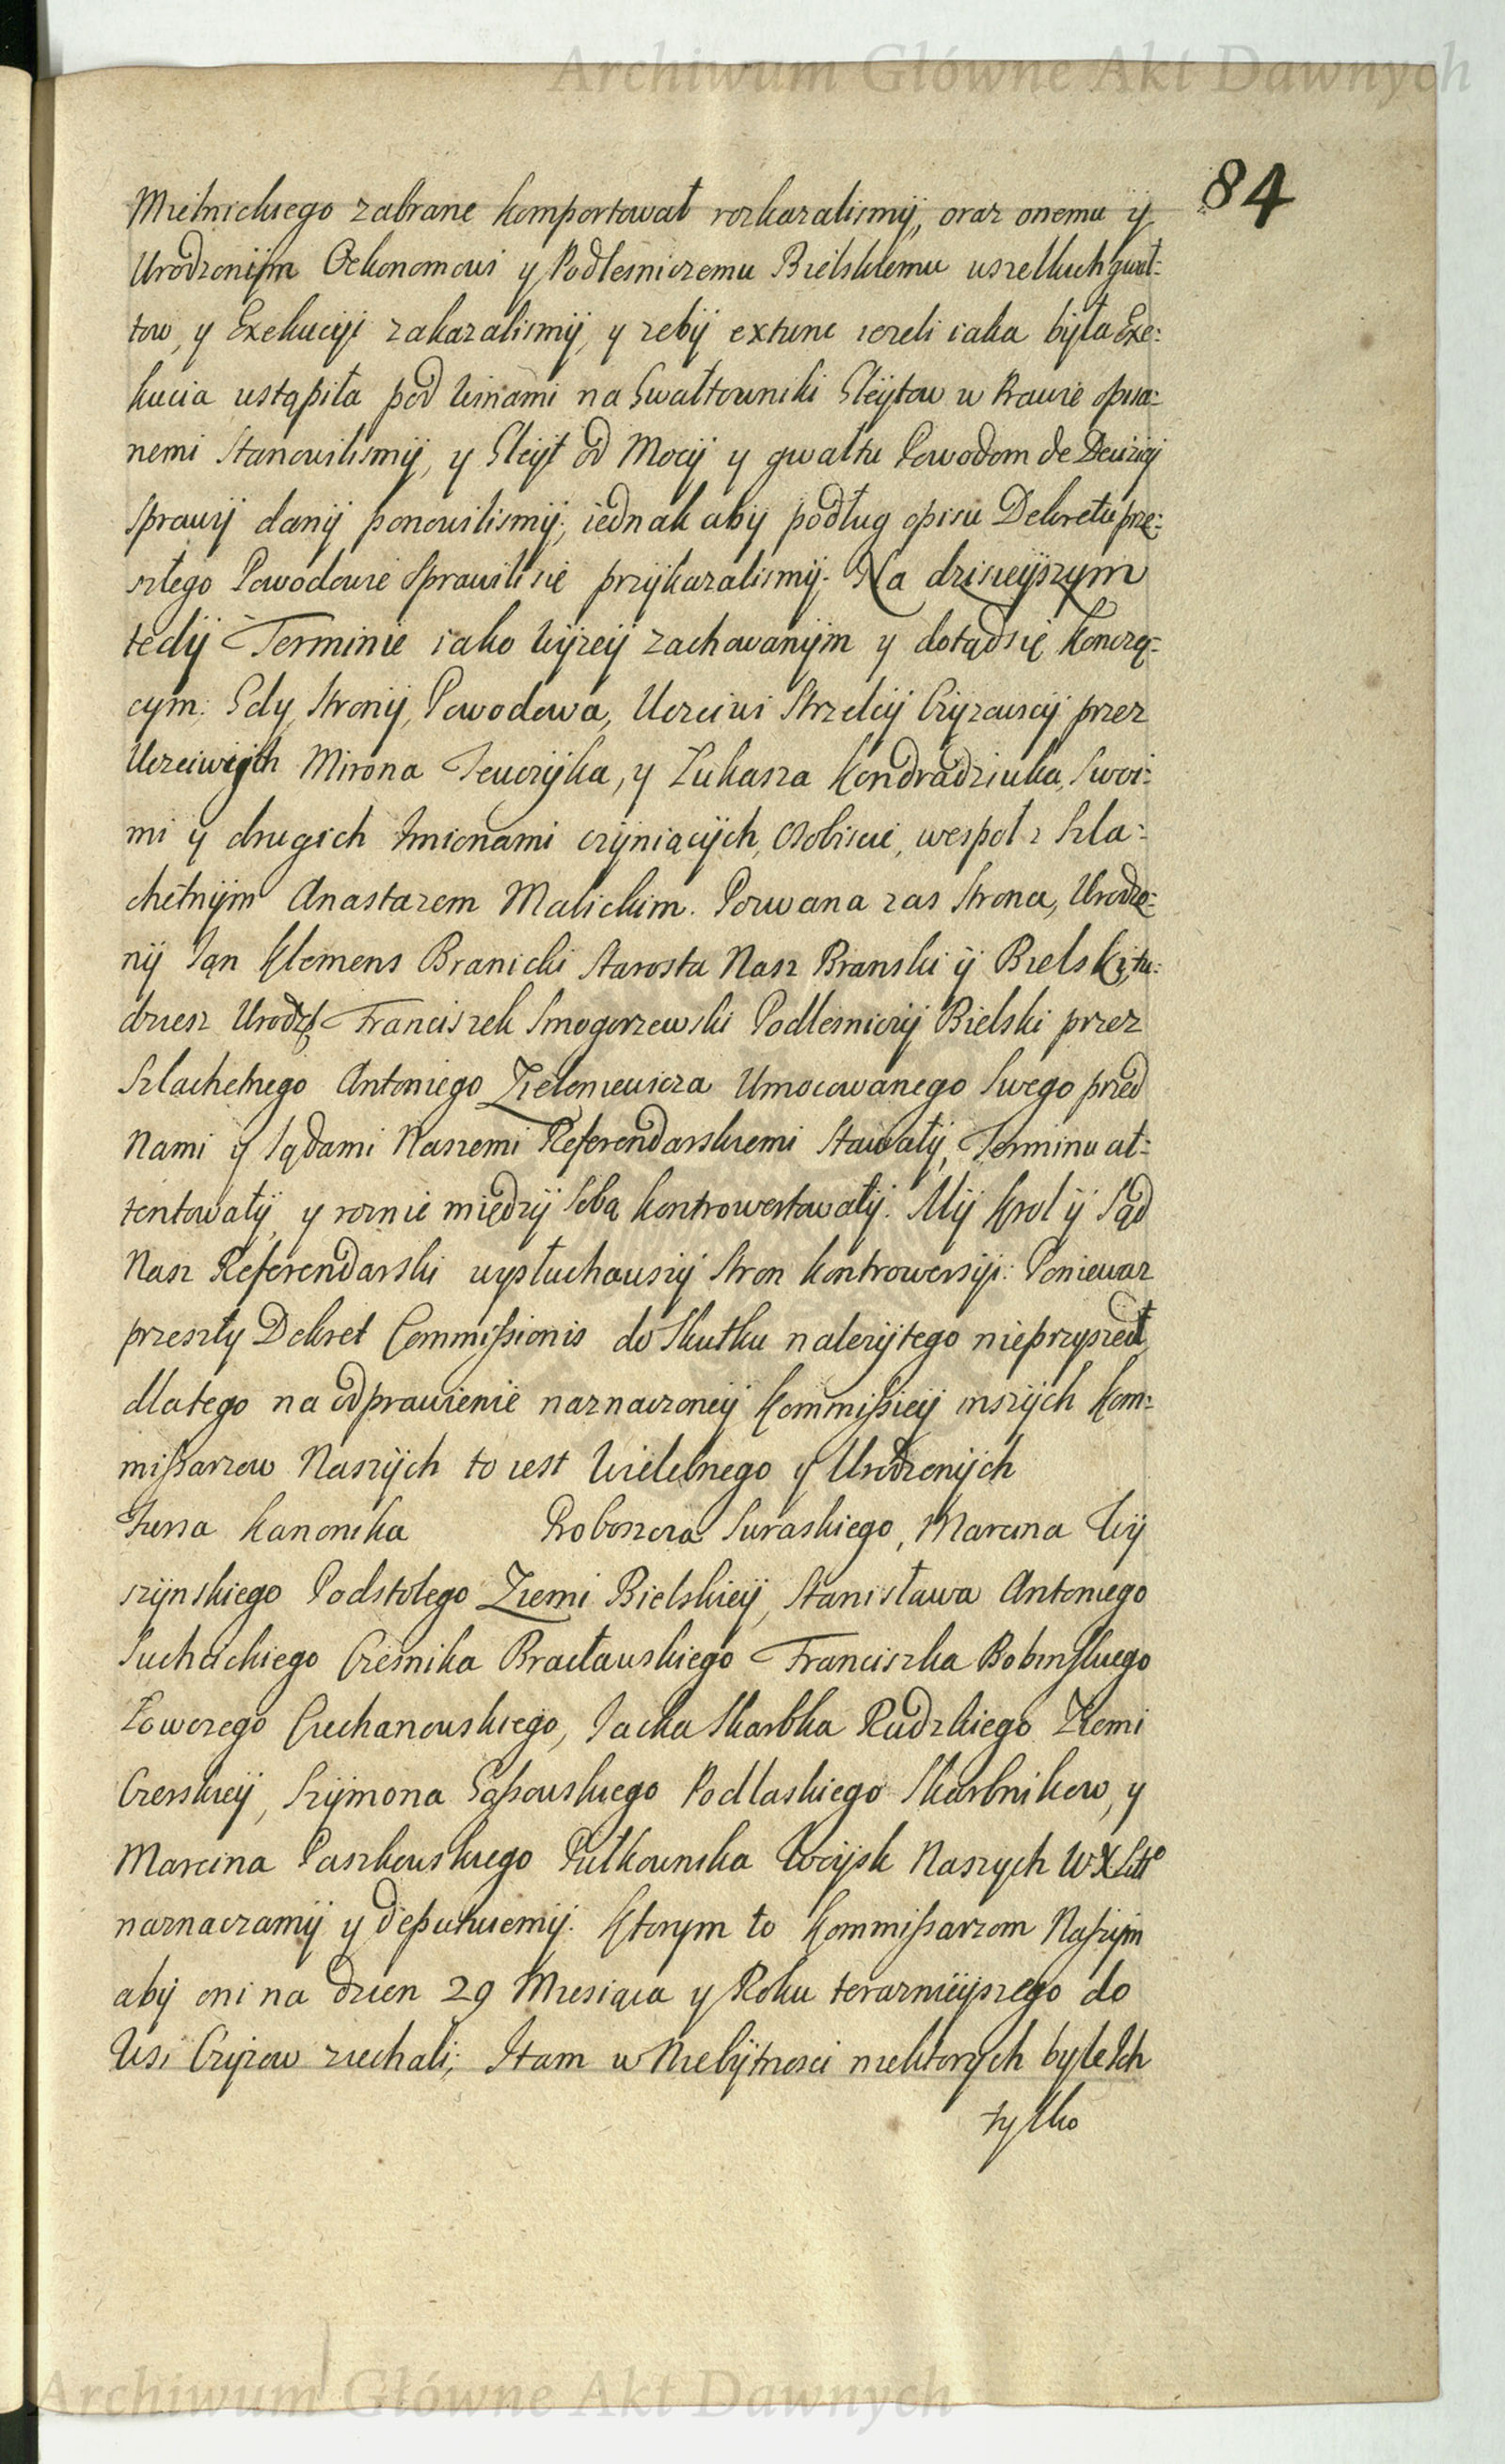 Archiwum Główne Akt Dawnych
84
Mielnickiego zabrane komportował rozkazalismÿ, oraz onemu ÿ
Urodzonÿm Oekonomowi y Podlesniczemu Bielskiemu wszelkich gwał:
tow, y Exekucÿi zakazalismÿ, y zebÿ extunc iezeli iaka bÿła Exe:
kucia ustąpiła pod Winami na Gwałtowniki Gleÿtow w Prawie opisa:
nemi Stanowilismÿ, y Gleÿt od Mocÿ y gwałtu Powodom de Decizÿi
Sprawÿ danÿ ponowilismÿ; iednak abÿ podług opisu Dekretu prze:
szłego Powodowie Sprawili się przÿkazalismÿ. Na dzisieÿszym
tedÿ Terminie iako wÿzeÿ zachowanÿm y dotąd się konczą:
cym. Gdy Stronÿ, Powodowa, Uczciwi Strzelcÿ Czÿzewscÿ przez
Uczciwÿch Mirona Jewczÿka, y Łukasza Kondradziuka, Swoi:
mi y drugich Imionami czÿniącÿch, Osobiscie, wespoł z Szla:
chetnÿm Anastazem Malickim. Pozwana zas Strona, Urodzo:
nÿ Jan Klemens Branicki Starosta Nasz Branski ÿ Bielski, tu:
dziesz Urodz Franciszek Smogorzewski Podlesniczÿ Bielski przez
Szlachetnego Antoniego Zieleniewicza Umocowanego Swego przed
Nami y Sądami Naszemi Referendarskiemi Stawałÿ, Terminu at:
tentowałÿ, y roznie międzÿ Sobą kontrowertowałÿ. Mÿ Krol ÿ Sąd
Nasz Referendarski wysłuchawszÿ Stron kontrowersÿi: Poniewaz
przeszłÿ Dekret Commissionis do Skutku nalezÿtego nieprzyszedł,
dlatego na odprawienie naznaczoneÿ Kommissieÿ inszÿch Kom:
missarzow Naszÿch to iest Wielebnego y Urodzonÿch
Jussa Kanonika Proboszcza Suraskiego, Marcina Wÿ
szÿnskiego Podstolego Ziemi Bielskieÿ, Stanisława Antoniego
Suchickiego Czesnika Bracławskiego Franciszka Bobinskiego
Łowczego Ciechanowskiego, Jacka Skarbka Rudzkiego Ziemi
Czerskieÿ, Szÿmona Gąssowskiego Podlaskiego Skarbnikow, y
Marcina Paszkowskiego Pułkownika Woÿsk Naszych WXLitto
naznaczamÿ y deputuiemÿ. Ktorym to Kommissarzom Naszÿm
abÿ oni na dzien 29 Miesiąca y Roku teraznieÿszego do
Wsi Czÿzow ziechali; Itam w Niebÿtnosci niektorych byle Ich
tylko
Archiwum Główne Akt Dawnych